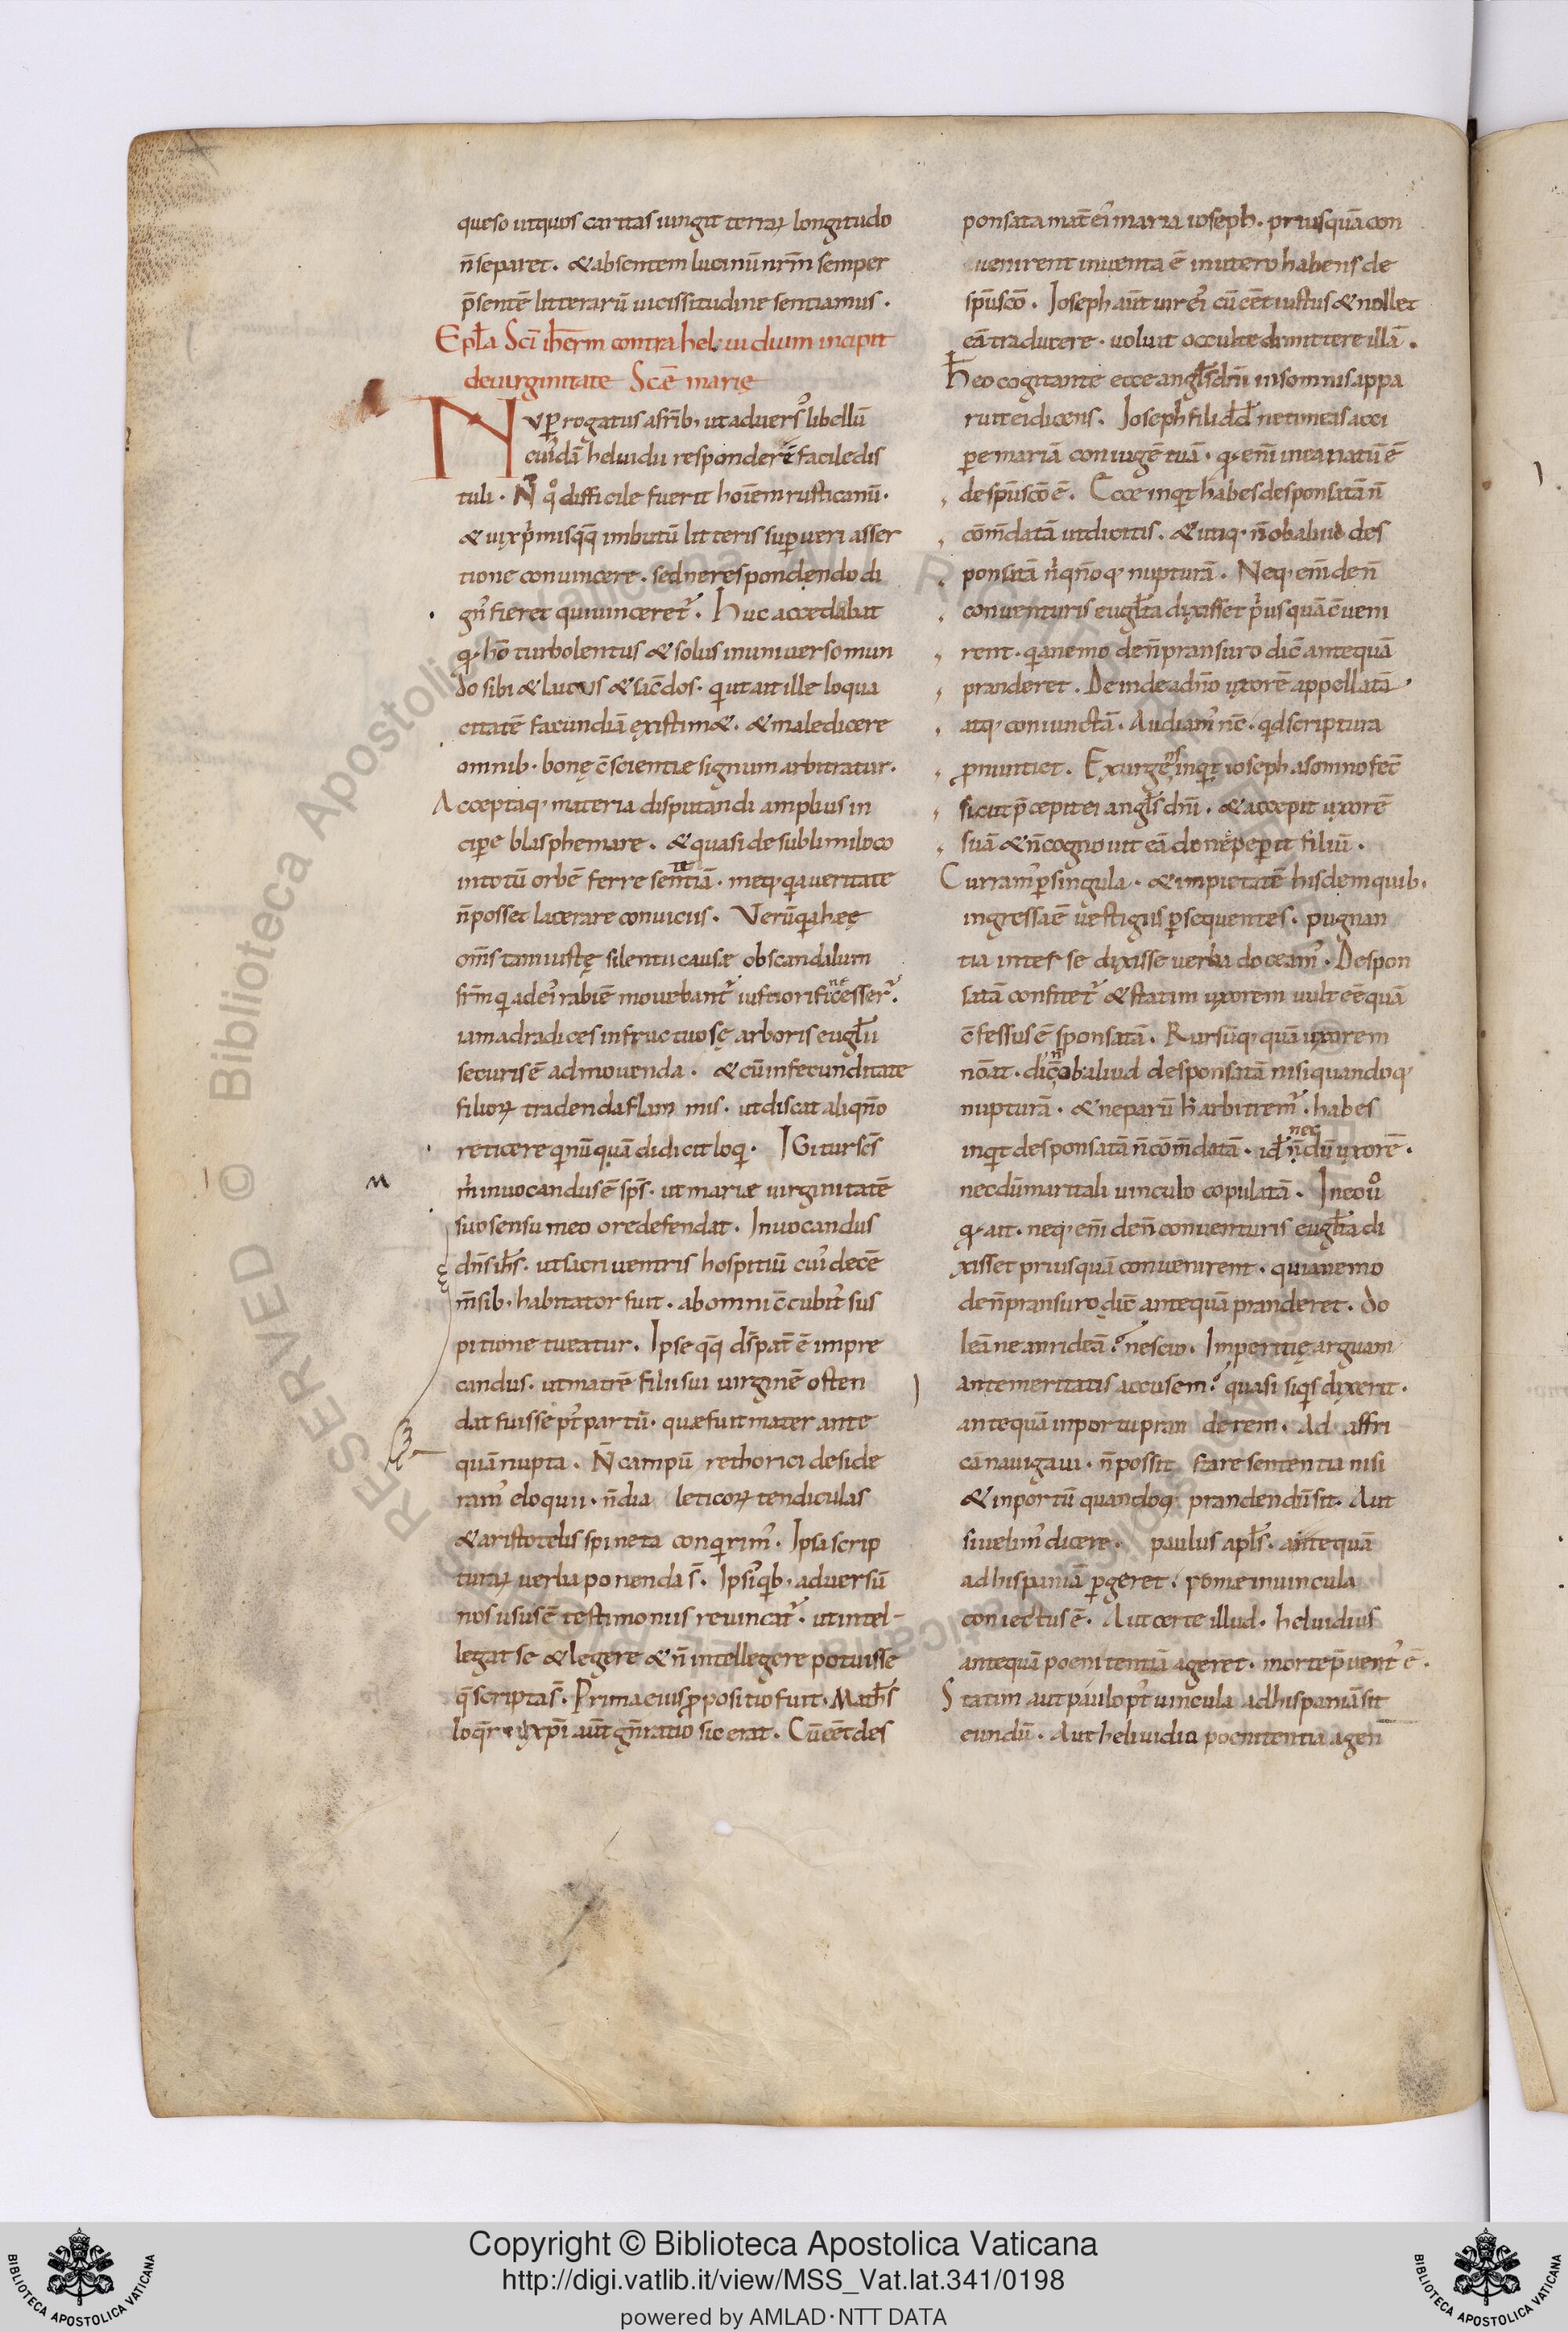 queso utquos caritas iungit terrarꝝ longitudo
n̄ separet. & absentem lucinū nr̄m semper
p̄sentē litterarū uicissitudine sentiamus.
Epl̄a Sc̄i ih̄erm contra heluidium incipit
de uirginitate Sc̄ę marię
Nuꝑ rogatus a fr̄ib; ut adūers' libellū
cui'dā heluidii responderē facile dis
tuli. N̄ qͦ difficile fuerit hoīem rusticanū.
& uix p'misq̄q̄ imbutū litteris suꝑ ueri asser
tione conuincere. sed ne respondendo di
gn' fieret qui uinceret'. Huc accedabat
q; hō turbolentus & solus in uniuerso mun
do sibi & laicus & sac̄dos. qi ut ait ille loqua
citatē facundiā ęxistim&. & maledicere
omnib. bonę c̄scientiæ signum arbitratur.
Acceptaq; materia disputandi amplius in
ciꝑe blasphemare. & quasi de sublimi loco
in totū orbē ferre sentiā. meq; qia ueritate
te
n̄ posset lacerare conuiciis. Verū qia hęę
om̄s tam iustę silentii causæ ob scandalum
fr̄m qi ad ei' rabiē mouebant' iustiori fi cesser'.
ne
iam ad radices infructuosę arboris eugl̄ii
securis ē admouenda. & cū infecunditate
filiorꝝ tradenda flam mis. ut discat aliqn̄o
reticere qi nūquā didicit loqi. IGitur sc̄s
m' inuocandus ē sp̄s. ut mariæ uirginitatē
M
suo sensu meo ore defendat. Inuocandus
dn̄s ih̄s. ut sacri uentris hospitiū cui' decē
m̄sib. habitator fuit. ab omni c̄cubit' sus
pitione tueatur. Ipse q̄q̄ ds̄ pat̄ ē impre
candus. ut matrē filii sui uirginē osten
dat fuisse pt̄ partū. quæ fuit mater ante
quā nupta. N̄ campū rethorici deside
ram' eloquii. n̄ dia leticorꝝ tendiculas
& aristotelis spineta conqirim'. Ipsa scrip
turarꝝ uerba ponenda s̄. Ipsi' qib; aduersū
nos usus ē testimoniis reuincat'. ut intel-
legat se & legere & n̄ intellegere potuisse
q̄ scripta s̄. Prima eius ꝓpositio fuit. Math̄s
loq̄r xp̄i aut̄ gn̄ratio sic erat. Cū eēt des
ponsata mat̄ ei' maria ioseph. priusquā con
uenirent inuenta ē in utero habens de
sp̄u sc̄o. Joseph aūt uir ei' cū eēt iustus & nollet
eā traducere. uoluit occulte dimittere illā.
H̄ eo cogitante ecce angl̄s dn̄i in somnis appa
ruit ei dicens. Joseph fili dd̄ ne timeas acci
ꝑe mariā coniugē tuā. q; enī in ea natū ē
de sp̄u sc̄o ē. Ecce inqit habes desponsatā n̄
cōm̄datā ut dicitis. & utiq; n̄ ob aliud des
ponsatā n' qn̄oq; nupturā. Neq; enī de n̄
conuenturis eugl̄ta dixisset p'usquā c̄ueni
rent. qia nemo de n̄ pransuro dic̄ antequā
pranderet. Deinde ad n̄o uxorē appellatā
atq; coniunctā. Audiam' nc̄. qid scriptura
ꝓnuntiet. Exurge inqit ioseph a somno fec̄
ns
sicut p̄cepit ei angl̄s dn̄i. & accepit uxorē
suā & n̄ cognouit eā donec peꝑit filiū.
Curram' ꝑ singula. & impietatē hisdem quib.
ingressa ē uestigiis ꝑsequentes. pugnan
tia inter se dixisse uerba doceam'. Despon
satā confitet' & statim uxorem uult eē quā
c̄fessus ē sponsatā. Rursūq; quā uxorem
nōat. dic̄ ob aliud desponsatā nisi quandoq;
n̄
nupturā. & ne parū h̄ arbitrem'. habes
inqit desponsatā n̄ cōm̄datā. id ē n̄dū uxorē.
nec
necdū maritali uinculo copulatā. In eo uͦ
q; ait. neq; enī de n̄ conuenturis eugl̄ta di
xisset priusquā conuenirent. quia nemo
de n̄ pransuro dic̄ antequā pranderet. do
leā ne an rideā? nescio. Imperitię arguam
an temeritatis accusem? quasi siqis dixerit.
antequā in portu pran derem. Ad affri
cā nauigaui. n̄ possit stare sententia nisi
& in portū quandoq; prandendū sit. Aut
si uelim' dicere. paulus apl̄s. antequā
ad hispaniā ꝑgeret. rome in uincula
coniectus ē. Aut certe illud. heluidius
antequā poenitentiā ageret. morte p̄uent' ē.
Statim aut paulo pt̄ uincula ad hispaniā sit
eundū. Aut heluidio poenitentia agen